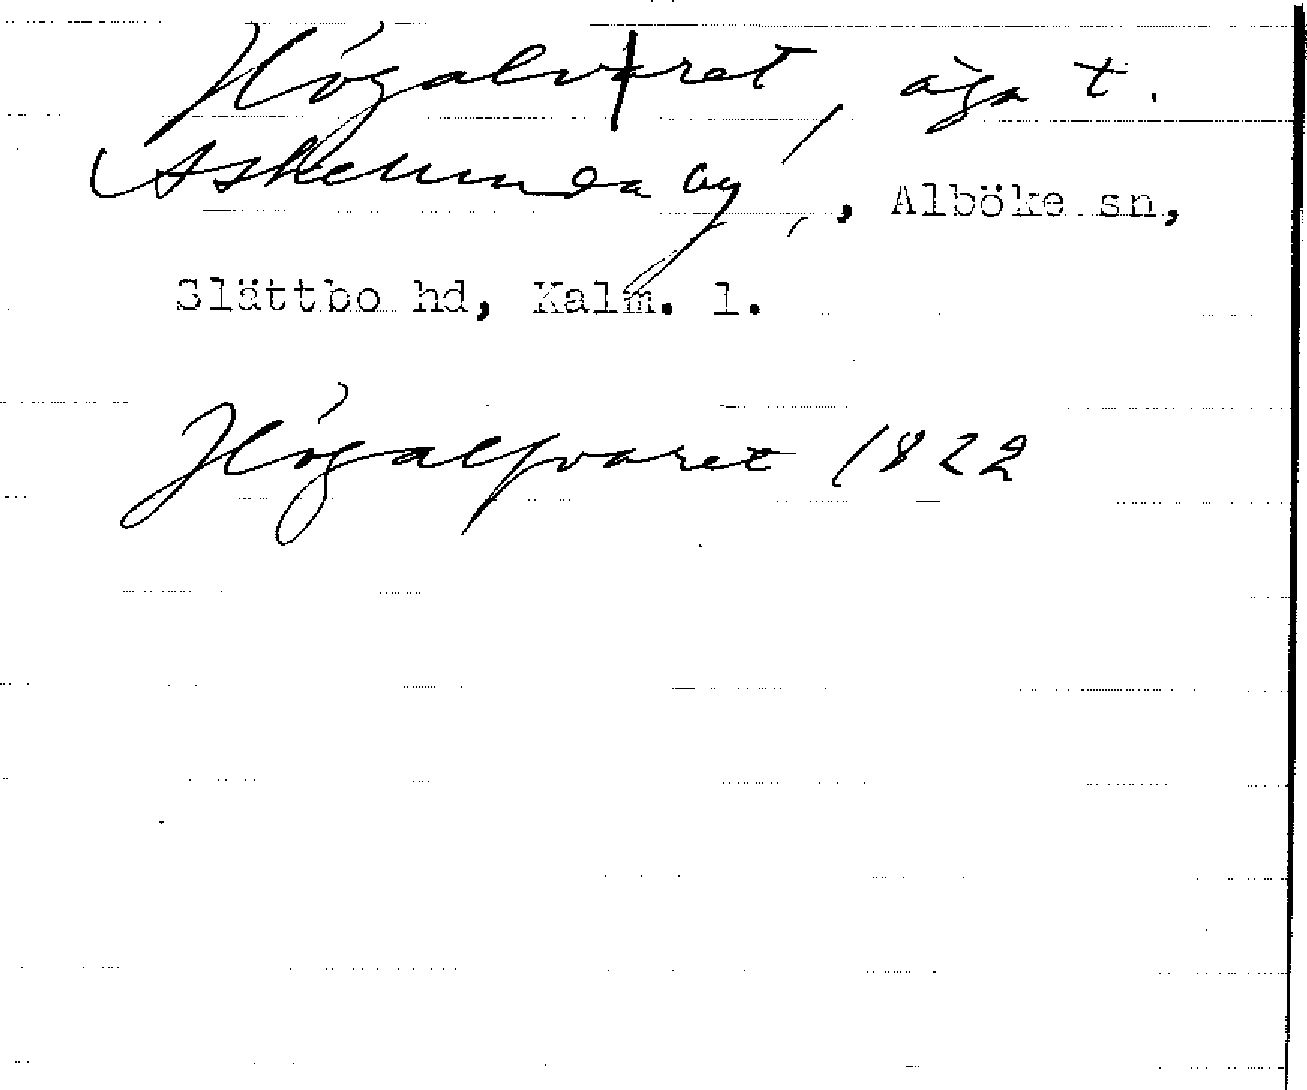 Högalvaret, äga t.
Askelunda by, Alböke sn,
Slättbo hd, Kalm. l.
Högalfvaret 1822